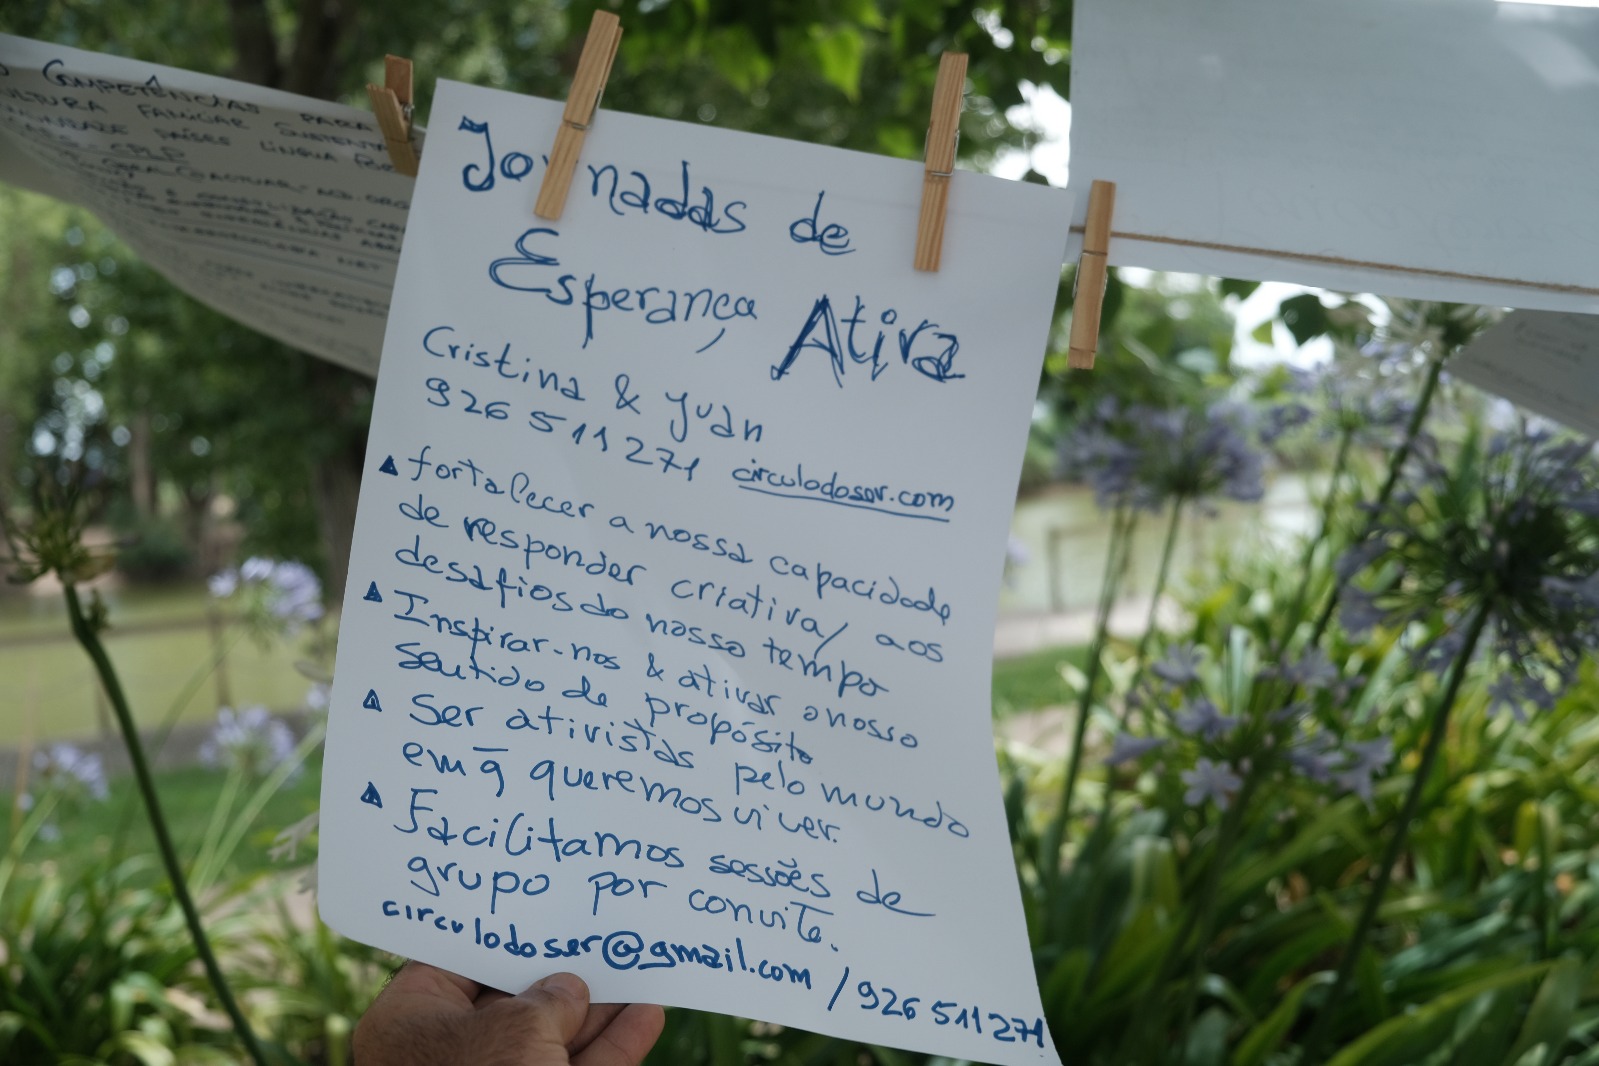 COMPETÊNCIAS PARA
FAMILIAR SUSTENTÁ
PAÍSES LÍNGUA
CPLP
Jornadas de
Esperança Ativa
Cristina & Yuan
926 511 271 circulodoser.com
▲ fortalecer a nossa capacidade
de responder criativa/ aos
desafios do nosso tempo
▲ Inspirar-nos & ativar o nosso
sentido de propósito
▲ Ser ativistas pelo mundo
em q̄ queremos viver.
▲ Facilitamos sessões de
grupo por convite.
circulodoser@gmail.com / 926 511 271